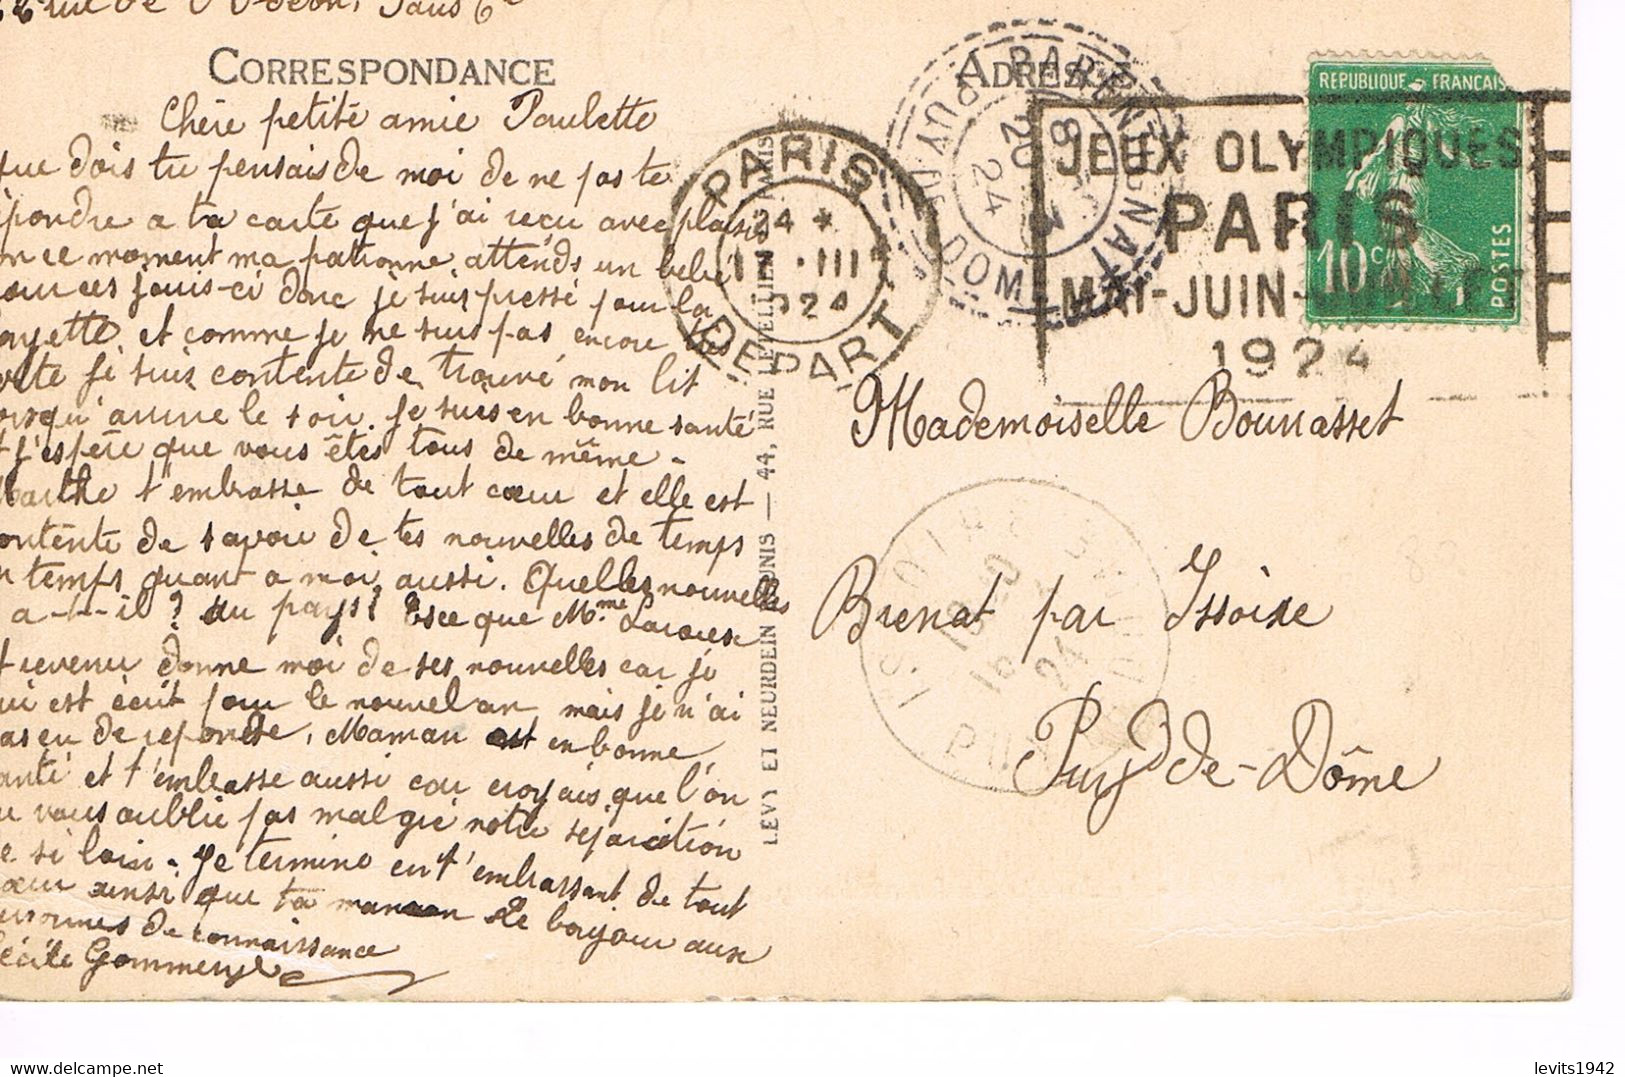 rue de l'Odéon, Paris 6e
CORRESPONDANCE
Chère petite amie Paulette
que dois tu pensais de moi de ne pas te
pondre a ta carte que j'ai reçu avec plaisi
ce moment ma patronne attends un bebe
ces jours-ci donc je suis pressé pour la
ayette et comme je ne suis pas encore très
vite je suis contente de trouvé mon lit
orsqu'arrive le soir. je suis en bonne santé
t j'espère que vous êtes tous de même -
Marthe t'embrasse de tout cœur et elle est
ontente de savoir de tes nouvelles de temps
n temps quant a moi, aussi. Quelles nouvelles
a-t-il? au pays? Esce que Mme
t revenu donne moi de ses nouvelles car je
ui est écrit pour le nouvel an mais je n'ai
as eu de reponse, Maman est en bonne
anté et t'embrasse aussi car croyais que l'on
e vous oublie pas malgré notre séparation
e si loin - Je termine en t'embrassant de tout
cœur ainsi que ta maman Le bonjour aux
personnes de connaissance
écile
LEVY ET NEURDEIN RÉUNIS — 44, RUE LETELLIER, PARIS
ADRESSE
PARIS
24 *
III
1924
DEPART
PARENTIGNAT
PUY DE DOME
8
20
3
24
JEUX OLYMPIQUES
PARIS
MAI-JUIN-JUILLET
1924
REPUBLIQUE FRANCAIS
10 C
POSTES
Mademoiselle Bounasset
Brenat par Issoire
Puy-de-Dôme
ISSOIRE
24
levits1942